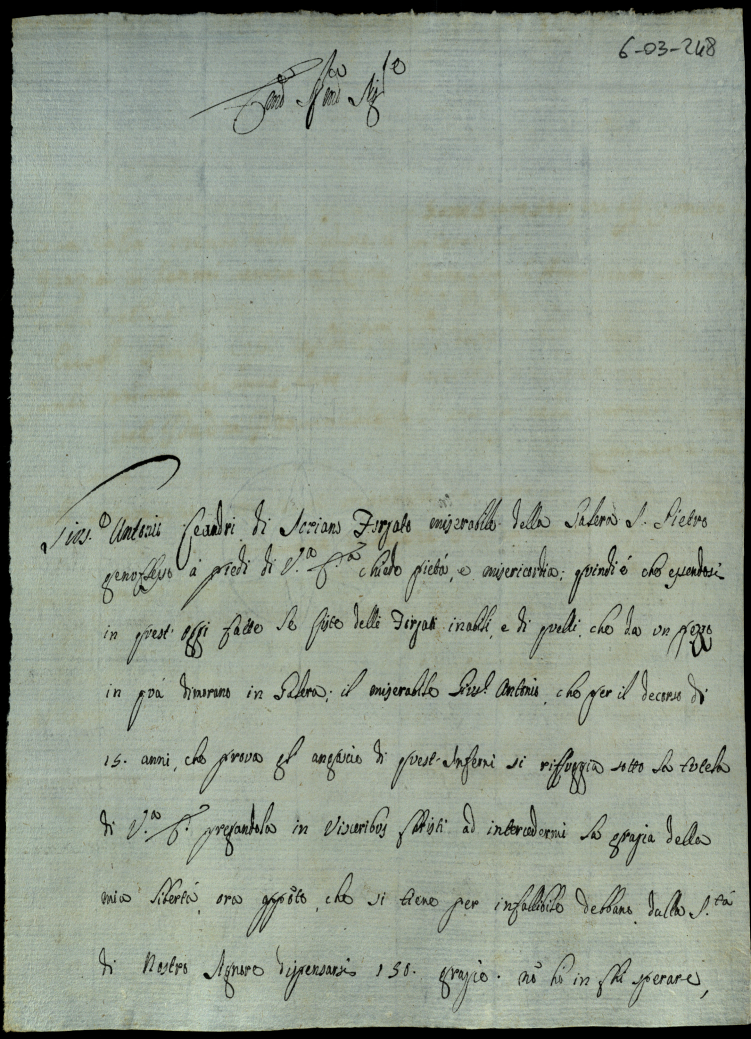 6-03-248
Emo Sig.re
Gius.e Antonio Leandri di Soriano Forzato miserabile della Galera S. Pietro
genuflesso à piedi di V.a E.a chiede pietá, e misericordia; quindi é che essendosi
in quest' oggi fatte le liste delli Forzati inabili, e di quelli, che da un pezzo
in quá dimorano in Galera; il miserabile Gius.e Antonio, che per il decorso di
15. anni, che prova gl' angoscie di quest' Inferni si riffuggia sotto la tutela
di V.a E. pregandola in visceribus Xpisti ad intercedermi la grazia della
mia libertá, ora appo͂to, che si tiene per infallibile debbano dalla S.tá
di Nostro Signore dispensarsi 150. grazie. nō hò in chi sperare,